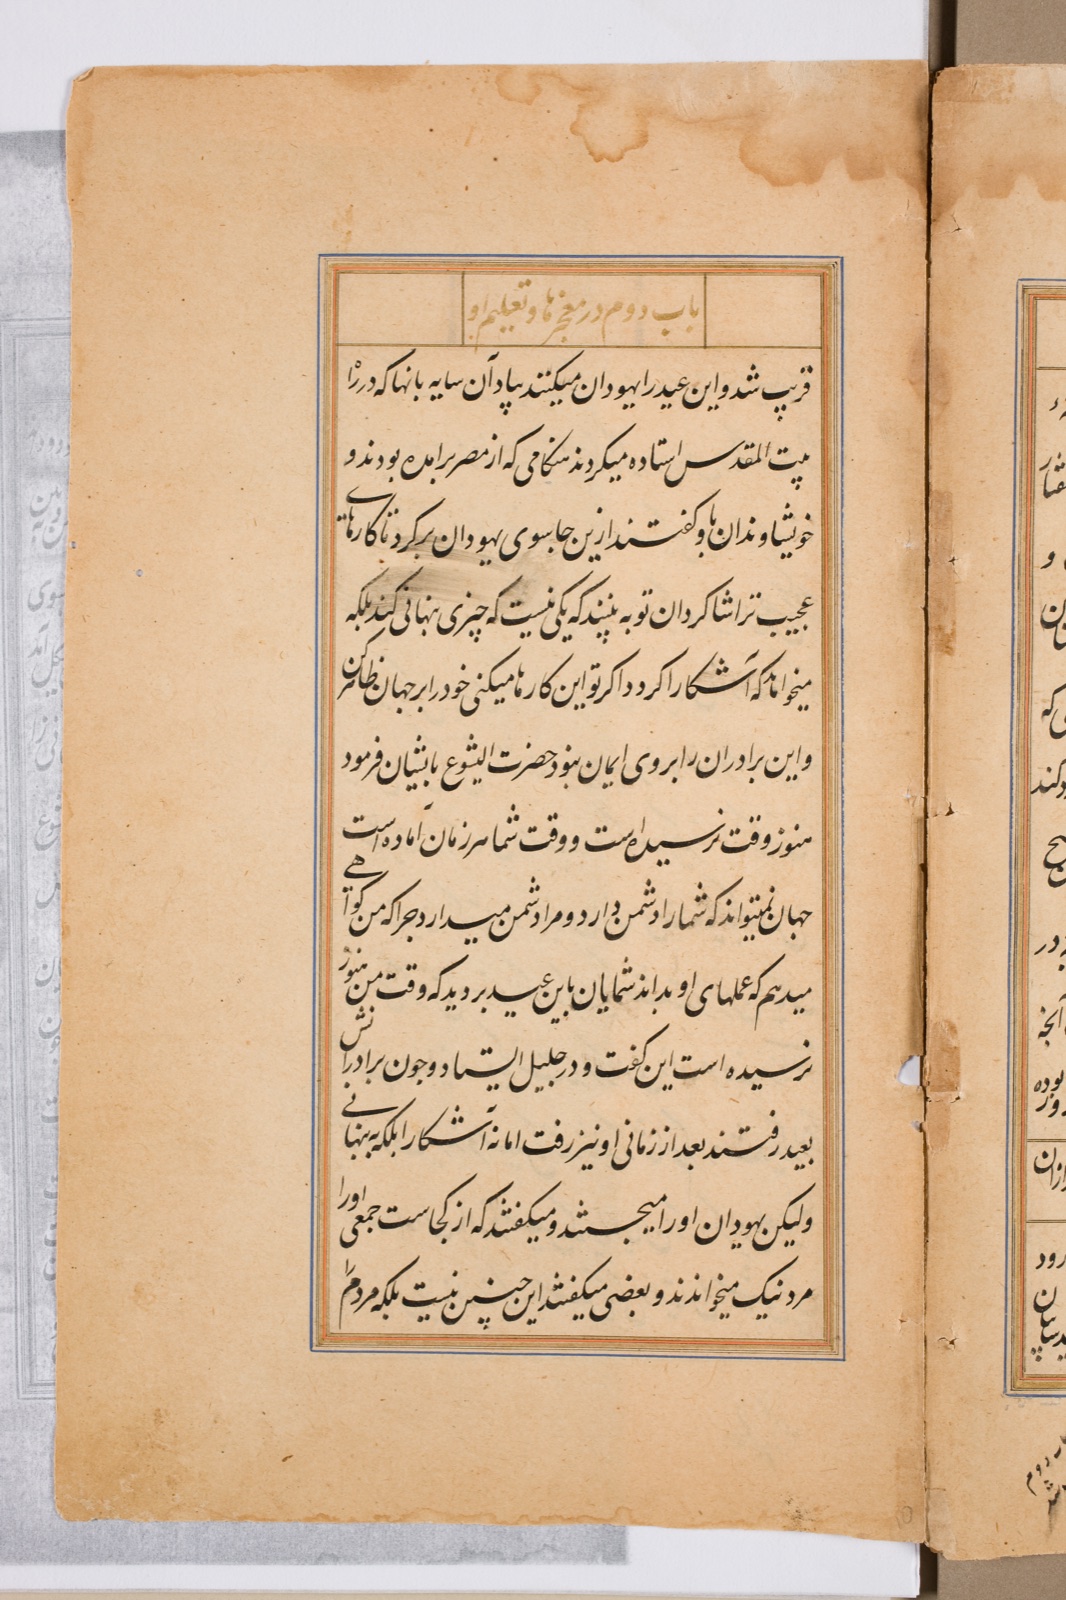 باب دوم در معجزها و تعلیم او
قریب شد و این عید را یهودان میکنند بیاد آن سایه بانها که در راه
بیت المقدس استاده میکردند هنکامی که از مصر برامده بودند و
خویشاوندان باو کفتند ازین جا بسوی یهودان برکرد تا کارهای
عجیب ترا شاکردان تو به بینند که یکی نیست که چیزی پنهانی کند بلکه
میخواهد که آشکارا کردد اکر تو این کارها میکنی خود را بر جهان ظاهر کن
و این برادران را بروی ایمان نبود حضرت ایشوع بایشان فرمود
هنوز وقت نرسیده است و وقت شما هر زمان آماده است
جهان نمیتواند که شما را دشمن دارد و مرا دشمن میدارد چرا که من کواهی
میدهم که عملهای او بداند شمایان باین عید بروید که وقت من هنوز
نرسیده است این کفت و در جلیل ایستاد و چون برادرانش
بعید رفتند بعد از زمانی او نیز رفت اما نه آشکارا بلکه به پنهانی
ولیکن یهودان او را میجستند و میکفتند که از کجاست جمعی او را
مرد نیک میخواندند و بعضی میکفتند این چنین نیست بلکه مردم را